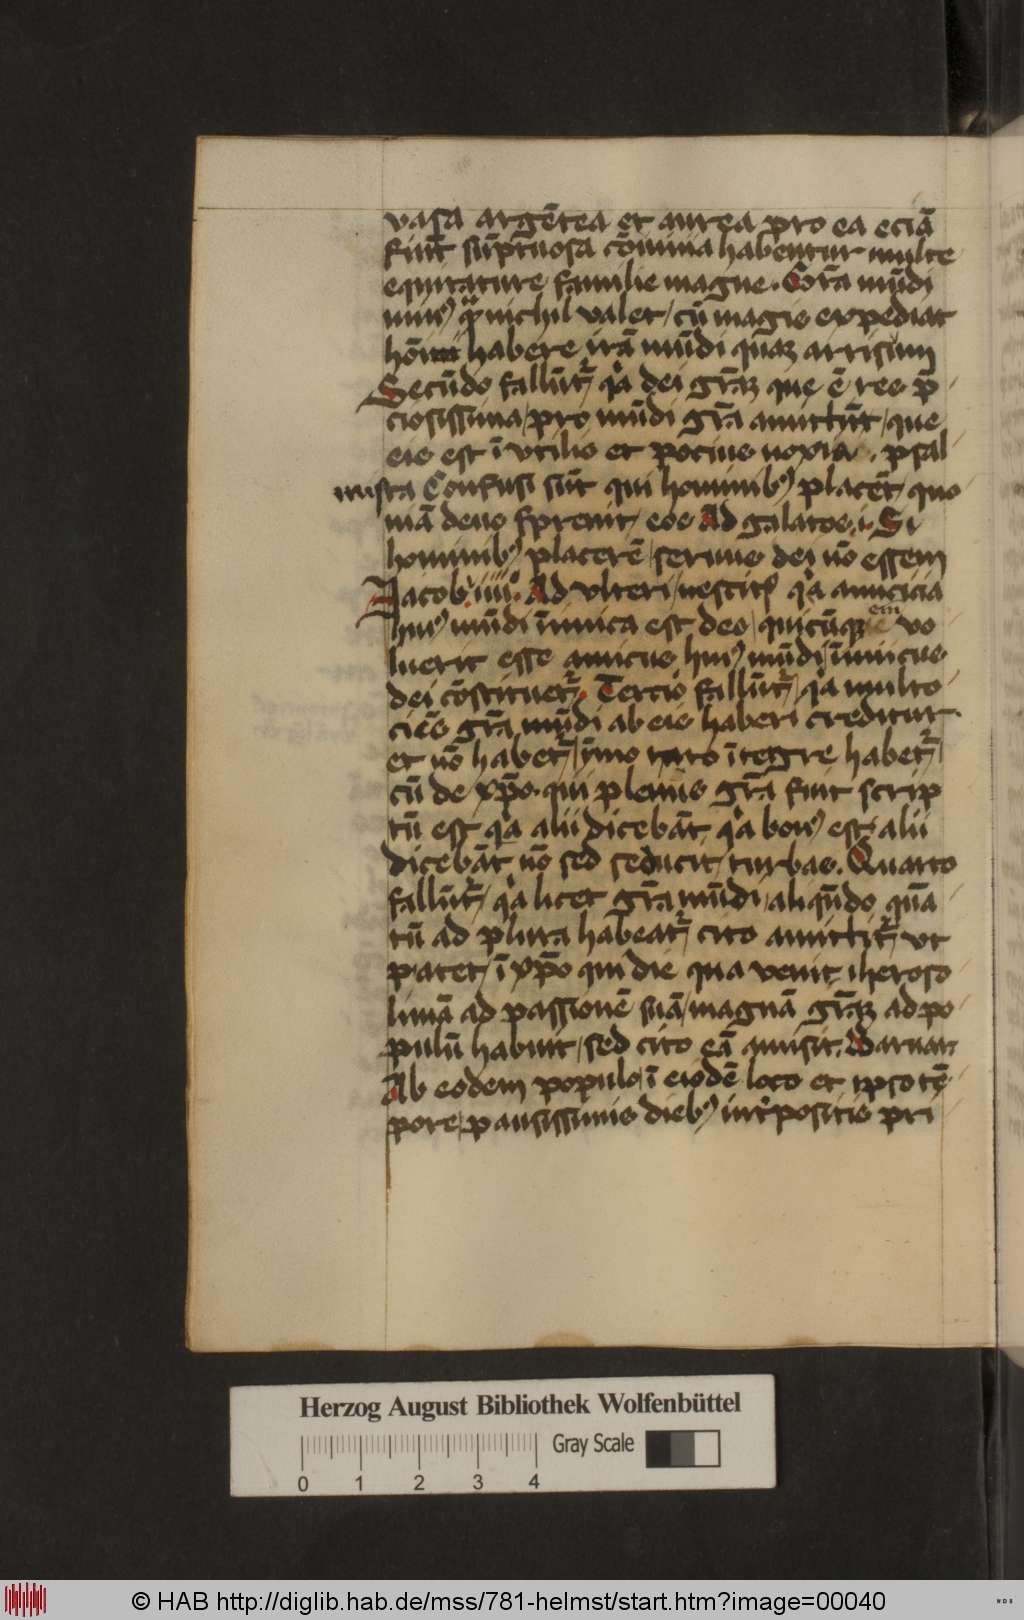 vasa argētea et aurea pro ea eciā
fiūt sūptuosa cōvivia habentur multe
equitature familie magne. Gr̄a mūdi
nimis nichil valet, cū magis expediat
hōni habere irā mūdi quaz arrisum
Secūdo fallūtr qa dei gr̄az que ē res p̄
ciosissima, pro mūdi gr̄a amittūt, que
eis est ī utilis et pocius noxia. psal
mista Confusi sūt qui hominibꝰ placēt, quo
niā deus sprevit eos Ad galatos i Si
hominibꝰ placerē, servus dei nō essem
Jacobi iiiiº Ad ulteri, nescitis qa amicicia
huiꝰ mūdi īimica est deo, quicūqz em vo
luerit esse amicus huiꝰ mūdi īimicus
dei cōstituetr. Tercio fallūtr, qa multo
ciēs gr̄a mūdi ab eis haberi creditur
et nō habetr, ymo raro ītegre habetr,
cū de xp̄o. qui plenus gr̄a fuit scrip
tū est qa alii dicebāt qa bonꝰ est, alii
dicebāt nō sed seducit, turbas. Quarto
fallūtr, qa licet gr̄a mūdi, aliqn̄do quā
tū ad plura habeatr, cito amittitr, ut
patet, ī xp̄o qui die qua venit, iheroso
limā ad passionē suā, magnā gr̄az ad po
pulū habuit, sed cito eā amisit.
Ab eodem populo, ī eodē loco et ipso tē
pore, paucissimis diebꝰ int̄positis pri
Herzog August Bibliothek Wolfenbüttel
0 1 2 3 4 Gray Scale
© HAB http://diglib.hab.de/mss/781-helmst/start.htm?image=00040